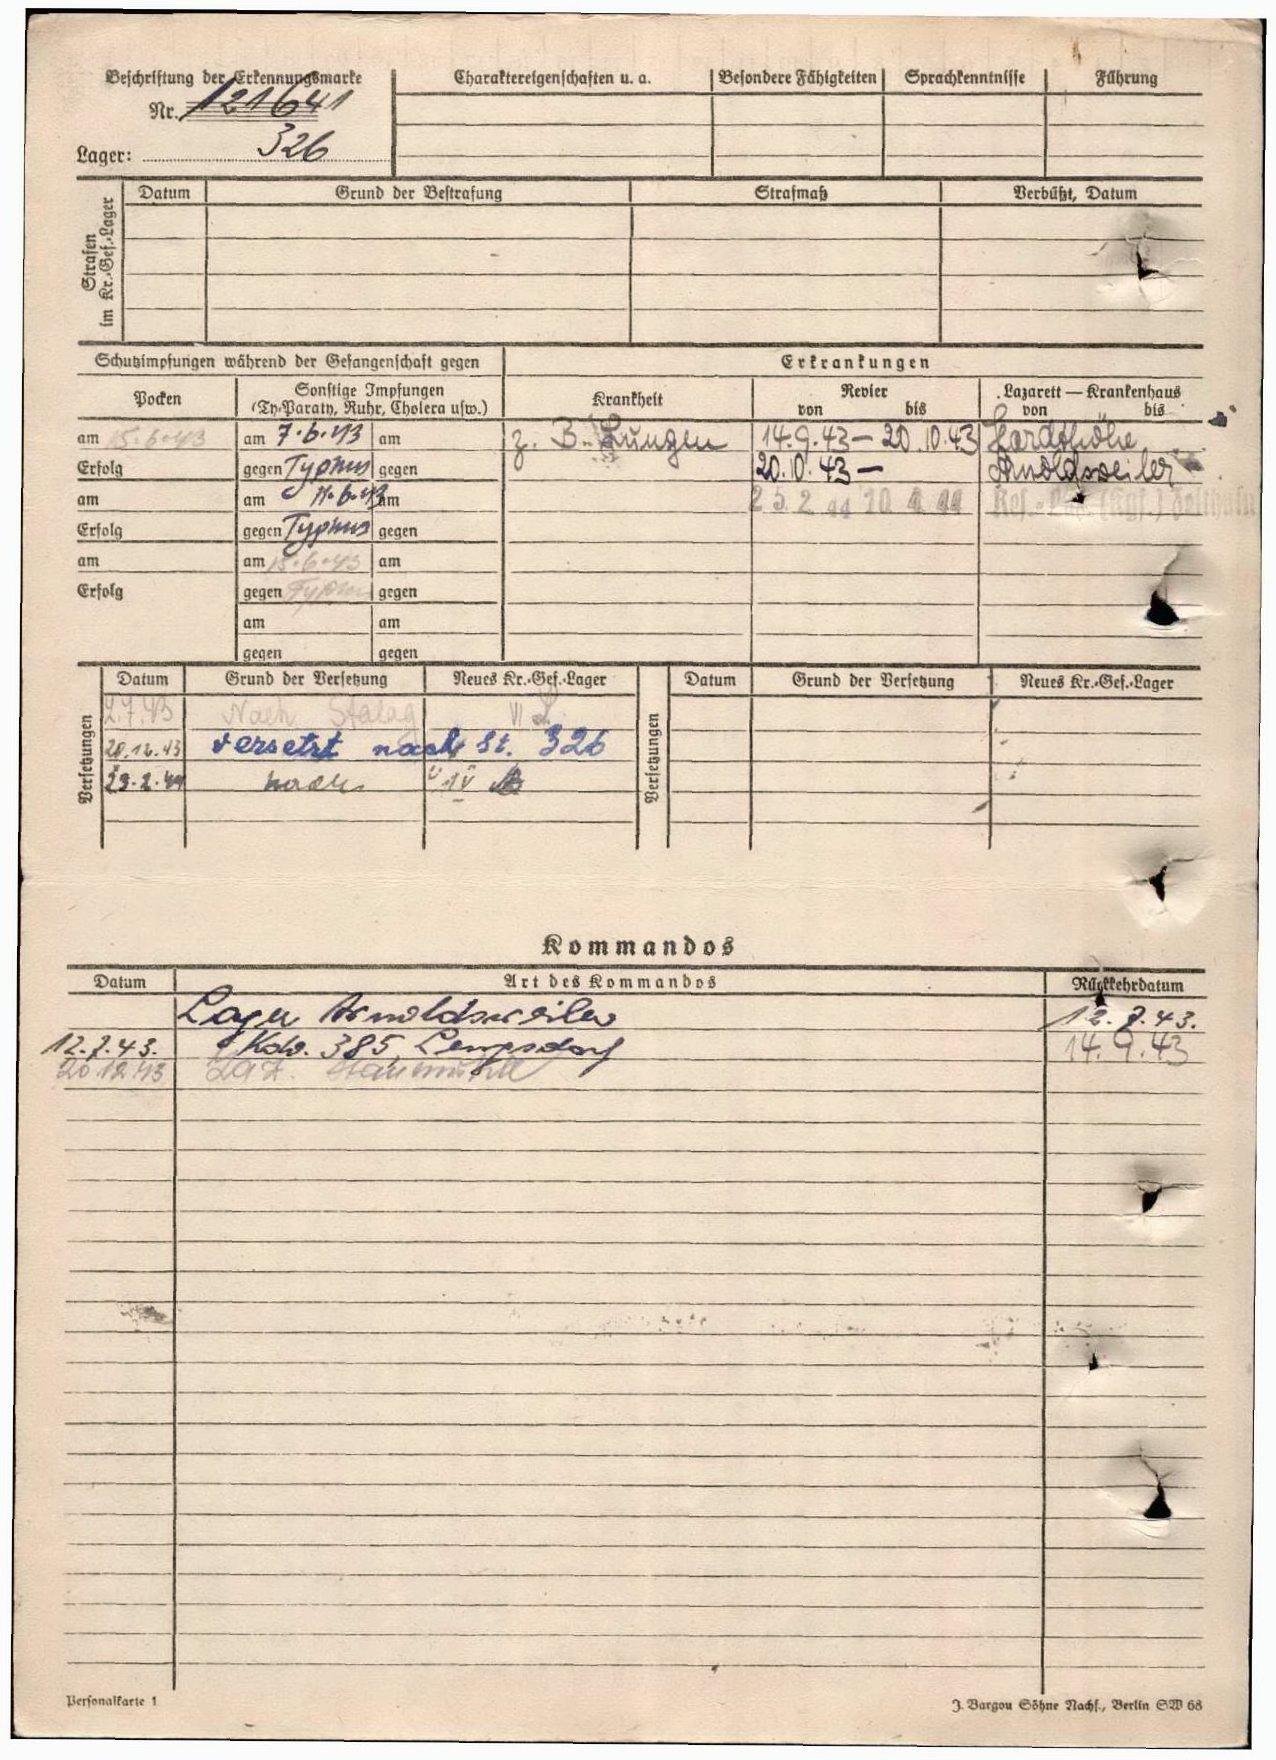 Beschriftung der Erkennungsmarke
Nr. 121641
Lager: 326
Charaktereigenschaften u. a. Besondere Fähigkeiten Sprachkenntnisse Führung
Strafen im Kr.-Gef.-Lager
Datum Grund der Bestrafung Strafmaß Verbüßt, Datum
Schutzimpfungen während der Gefangenschaft gegen Erkrankungen
Pocken Sonstige Impfungen (Ty-Paraty, Ruhr, Cholera usw.) Krankheit Revier von bis Lazarett — Krankenhaus von bis
am 15.6.43 am 7.6.43 am z. B. Lungen 14.9.43 — 20.10.43 Hardthöhe
Erfolg gegen Typhus gegen 20.10.43 — Arnoldsweiler
am am 11.6.43 am 25.2.44 10.4.44 Res.-Laz. (Kgf.)
Erfolg gegen Typhus gegen
am am 15.6.43 am
Erfolg gegen Typhus gegen
am am
gegen gegen
Versetzungen
Datum Grund der Versetzung Neues Kr.-Gef.-Lager
2.7.43 Nach Stalag VI
20.12.43 versetzt nach St. 326
23.2.44 nach IV B
Versetzungen
Datum Grund der Versetzung Neues Kr.-Gef.-Lager
Kommandos
Datum Art des Kommandos Rückkehrdatum
Lager Arnoldsweiler 12.7.43.
12.7.43. Kdo. 385, 14.9.43
20.12.43 Laz. Staumühle
Personalkarte 1
J. Bargou Söhne Nachf., Berlin SW 68